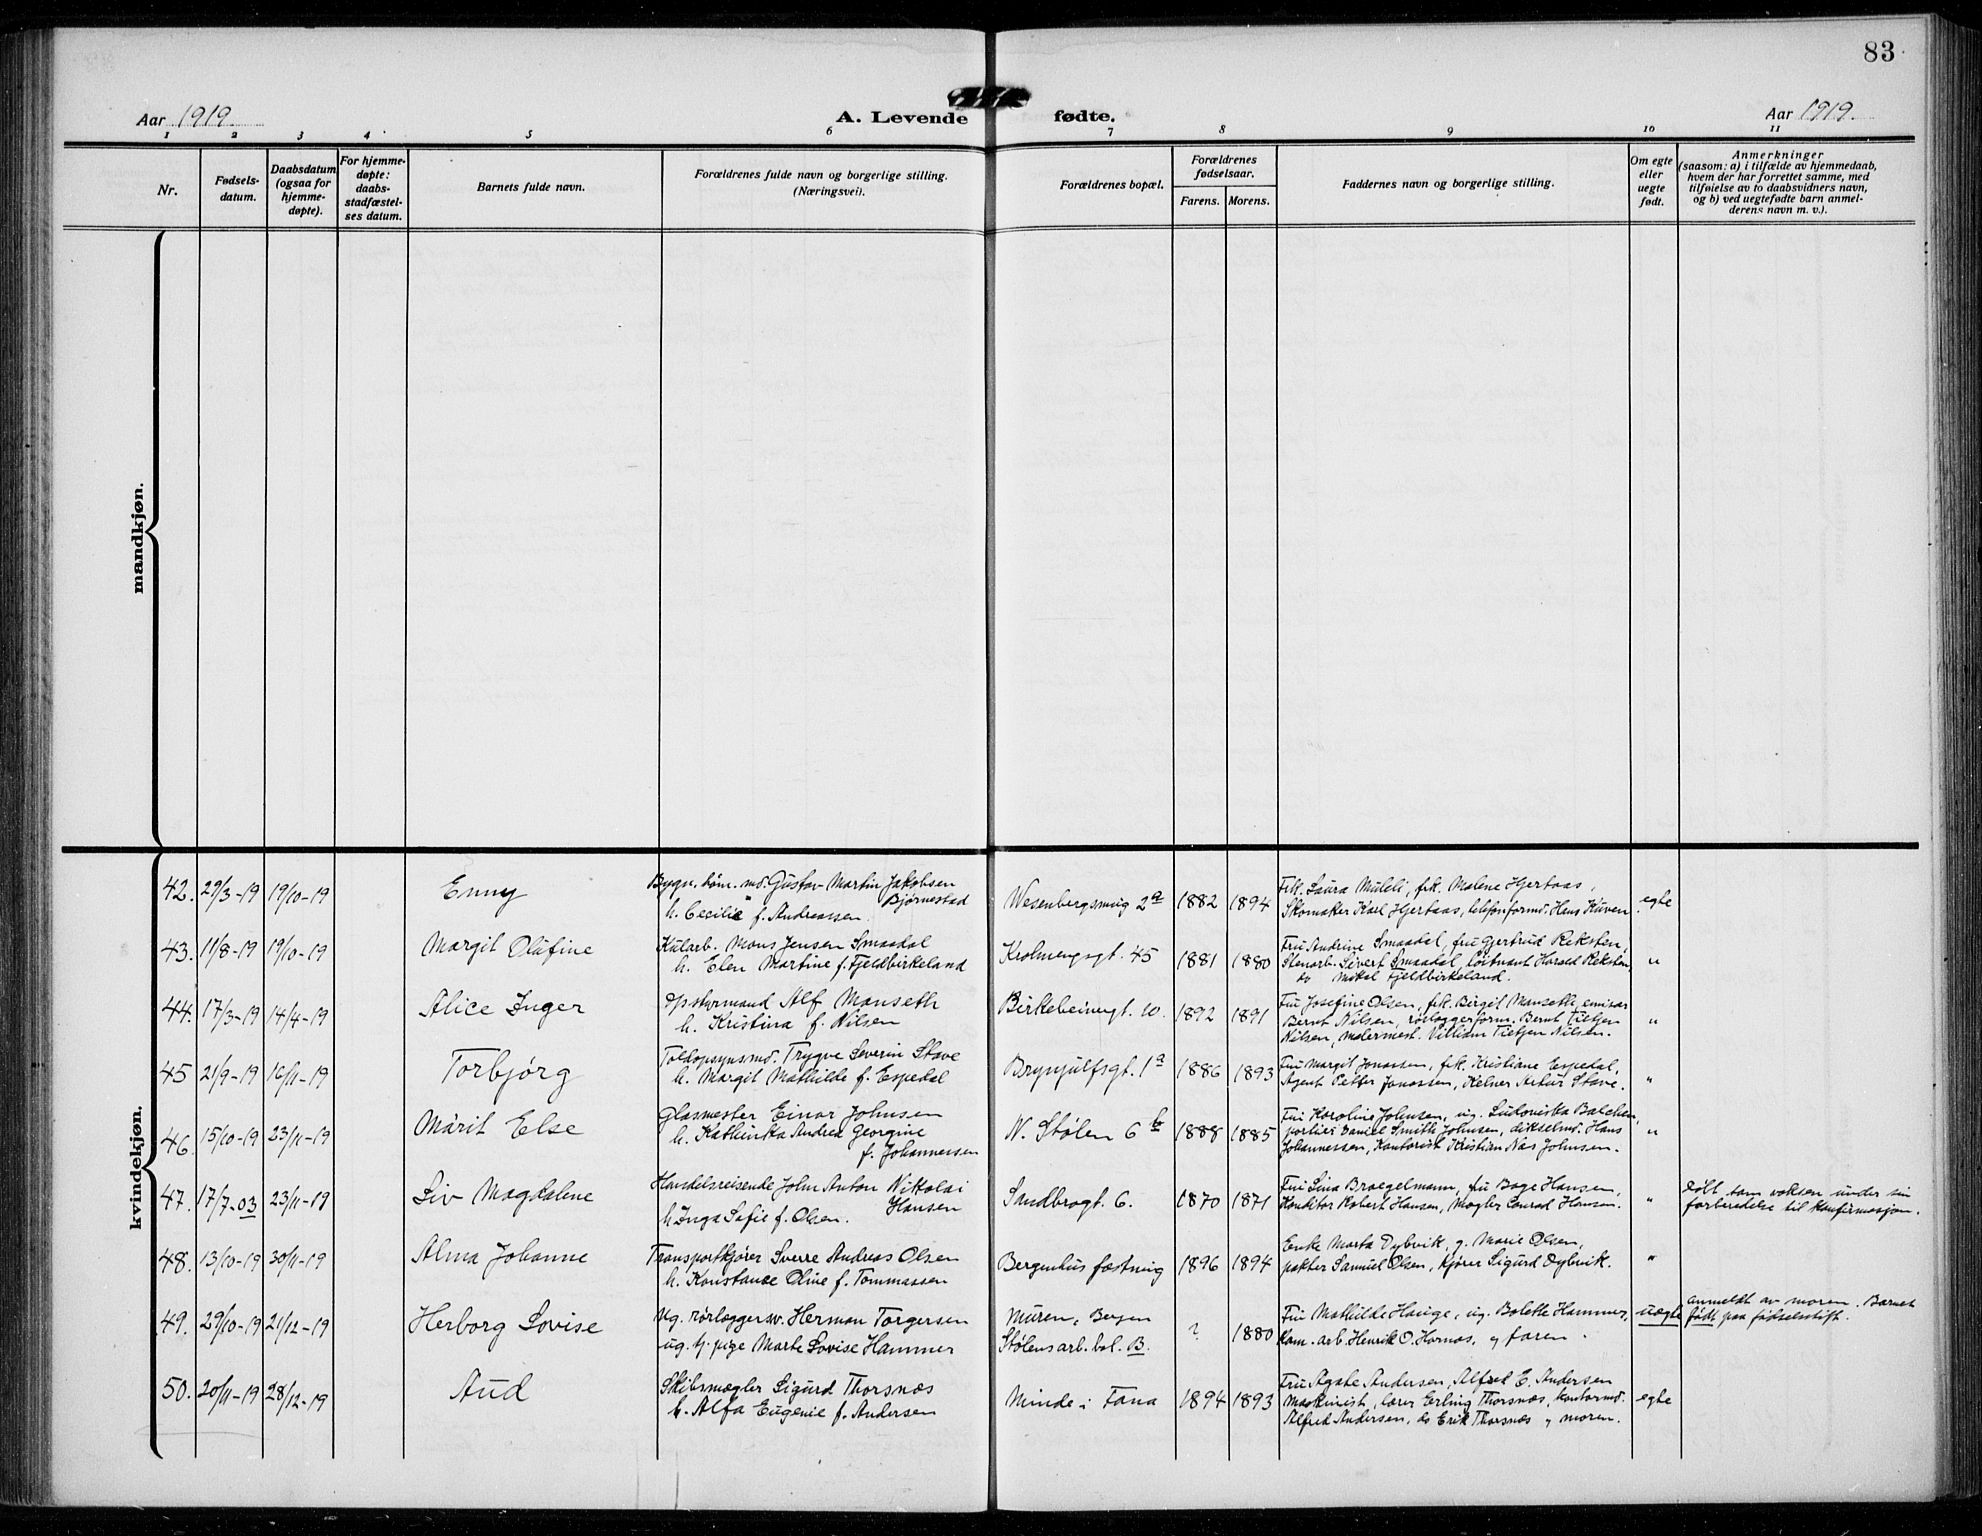 83
Aar 1919.
A. Levende fødte.
Aar 1919.
1 2 3 4 5 6 7 8 9 10 11
Nr.
Fødsels-
datum.
Daabsdatum
(ogsaa for
hjemme-
døpte).
For hjemme-
døpte:
daabs-
stadfæstel-
ses datum.
Barnets fulde navn.
Forældrenes fulde navn og borgerlige stilling.
(Næringsvei).
Forældrenes bopæl.
Forældrenes
fødselsaar.
Farens. Morens.
Faddernes navn og borgerlige stilling.
Om egte
eller
uegte
født.
Anmerkninger
(saasom: a) i tilfælde av hjemmedaab,
hvem der har forrettet samme, med
tilføielse av to daabsvidners navn,
og b) ved uegtefødte barn anmel-
derens navn m. v.).
mandkjøn.
kvindekjøn.
42. 29/3-19 19/10-19
Enny
Gustav Martin Jakobsen
Bjørnestad
h. Cecilie f. Andreassen.
Wesenbergsmug 2a
1882 1894
Frk. Laura Muleli, frk. Malene Hjertaas,
Skomaker Karl Hjertaas, telefonformd. Hans Kuven
egte
43. 11/8-19 19/10-19
Margit Olufine
Kularb. Mons Jensen Smaadal
h. Elen Martine f. Fjeldbirkeland
Krohnengsgt. 45
1881 1880
Fru Andrine Smaadal, fru Gjertrud Reksten,
Stenarb. Sivert Smaadal, Løitnant Harald Reksten,
do Mikal Fjeldbirkeland.
"
44. 17/3-19 14/4-19
Alice Inger
Opstyrmand Alf Manseth
h. Kristina f. Nilsen
Birkebeinergt. 10.
1892 1891
Fru Josefine Olsen, frk. Birgit Manseth, emisær
Bernt Nilsen, rørlæggerform. Bernt Tietjen
Nilsen, Malermest. Villiam Tietjen Nilsen.
"
45 21/9-19 16/11-19
Torbjørg
Toldopsynsmd. Trygve Severin Stave
h. Margit Mathilde f. Espedal
Brynjulfsgt. 1a
1886 1893
Fru Margit Jonassen, frk. Kristiane Espedal,
Agent Petter Jonassen, Kelner Artur Stave.
"
46. 15/10-19 23/11-19
Márit Else
Glasmester Einar Johnsen
h. Kathinka Andrea Georgine
f. Johannessen
N. Stølen 6 b
1888 1885
Fru Karoline Johnsen, ug. Ludovikka Balchen,
portier Daniel Smith Johnsen, dikselmd. Hans
Johannessen, Kontorist Kristian Nas Johnsen.
"
47. 17/7-03 23/11-19
Liv Magdalene
Handelsreisende John Anton Nikolai
Hansen
h. Inga Sofie f. Olsen.
Sandbrogt. 6.
1870 1871
Fru Lina Braegelmann, fru Bage Hansen,
Konditor Robert Hansen, Mægler Conrad Hansen.
"
Døbt som voksen under sin
forberedelse til konfirmasjon.
48. 13/10-19 30/11-19
Alma Johanne
Transportkjører Sverre Andreas Olsen
h. Konstance Oline f. Tommassen
Bergenhus fæstning
1896 1894
Enke Marta Dybvik, g. Marie Olsen,
pakter Samuel Olsen, kjører Sigurd Dybvik.
"
49. 29/10-19 21/12-19
Herborg Lovise
Ug. rørlæggersv. Herman Torgersen
ug. tj. pige Marte Lovise Hammer
Muren, Bergen
Stølens arb. bol. B.
? 1880
Fru Mathilde Hauge, ug. Bolette Hammer,
Kom. arb. Henrik O. Hornæs, og faren.
uægte
anmeldt av moren. Barnet
født paa fødselsstift.
50. 20/11-19 28/12-19
Aud
Skibsmægler Sigurd Thorsnæs
h. Alfa Eugenie f. Andersen
Minde i Fana
1894 1893
Fru Agate Andersen, Alfred E. Andersen
Maskinist, lærer Erling Thorsnæs, kontormd.
Alfred Andersen, do Erik Thorsnæs og moren.
egte